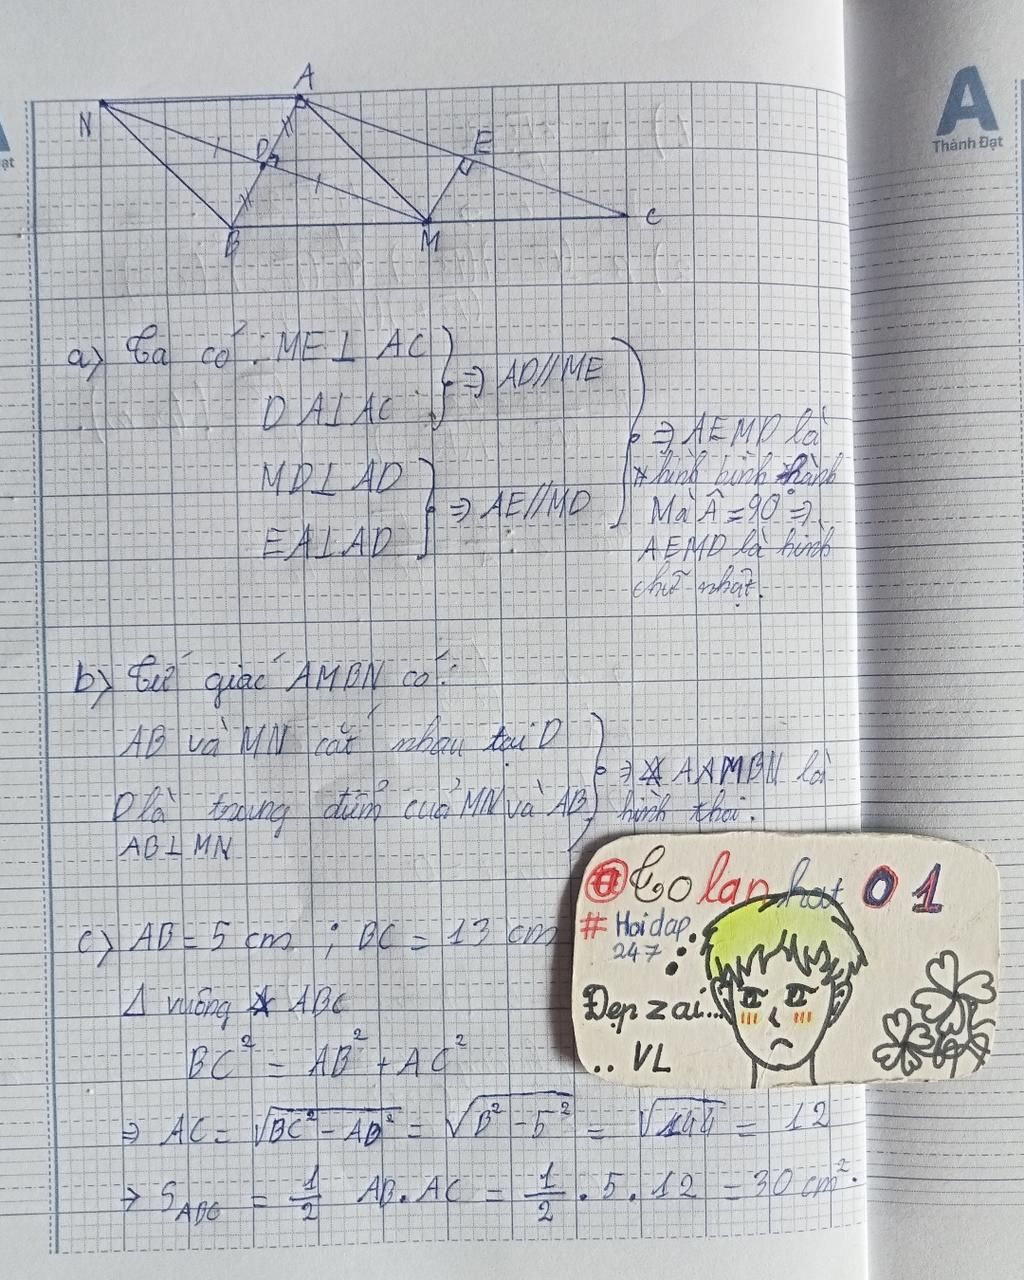 A
Thành Đạt
ạt
A
N
D
E
B
M
C
a) Ta có: ME⊥ AC
DA⊥AC
⇒ AD//ME
MD⊥ AD
EA⊥AD
⇒ AE//MD
⇒ AEMD là
hình bình hành
Mà Â = 90° ⇒
AEMD là hình
chữ nhật.
b) Tứ giác AMBN có:
AB và MN cắt nhau tại D
D là trung điểm của MN và AB
AB⊥MN
⇒ AAMBN là
hình thoi.
c) AB = 5 cm ; BC = 13 cm
Δ vuông ABC
BC² = AB² + AC²
⇒ AC = √BC² - AB² = √13² - 5² = √144 = 12
→ S_ABC = 1/2 AB.AC = 1/2 . 5 . 12 = 30 cm².
Tolanhat 01
# Hoidap
247
Đẹp zai...
.. VL